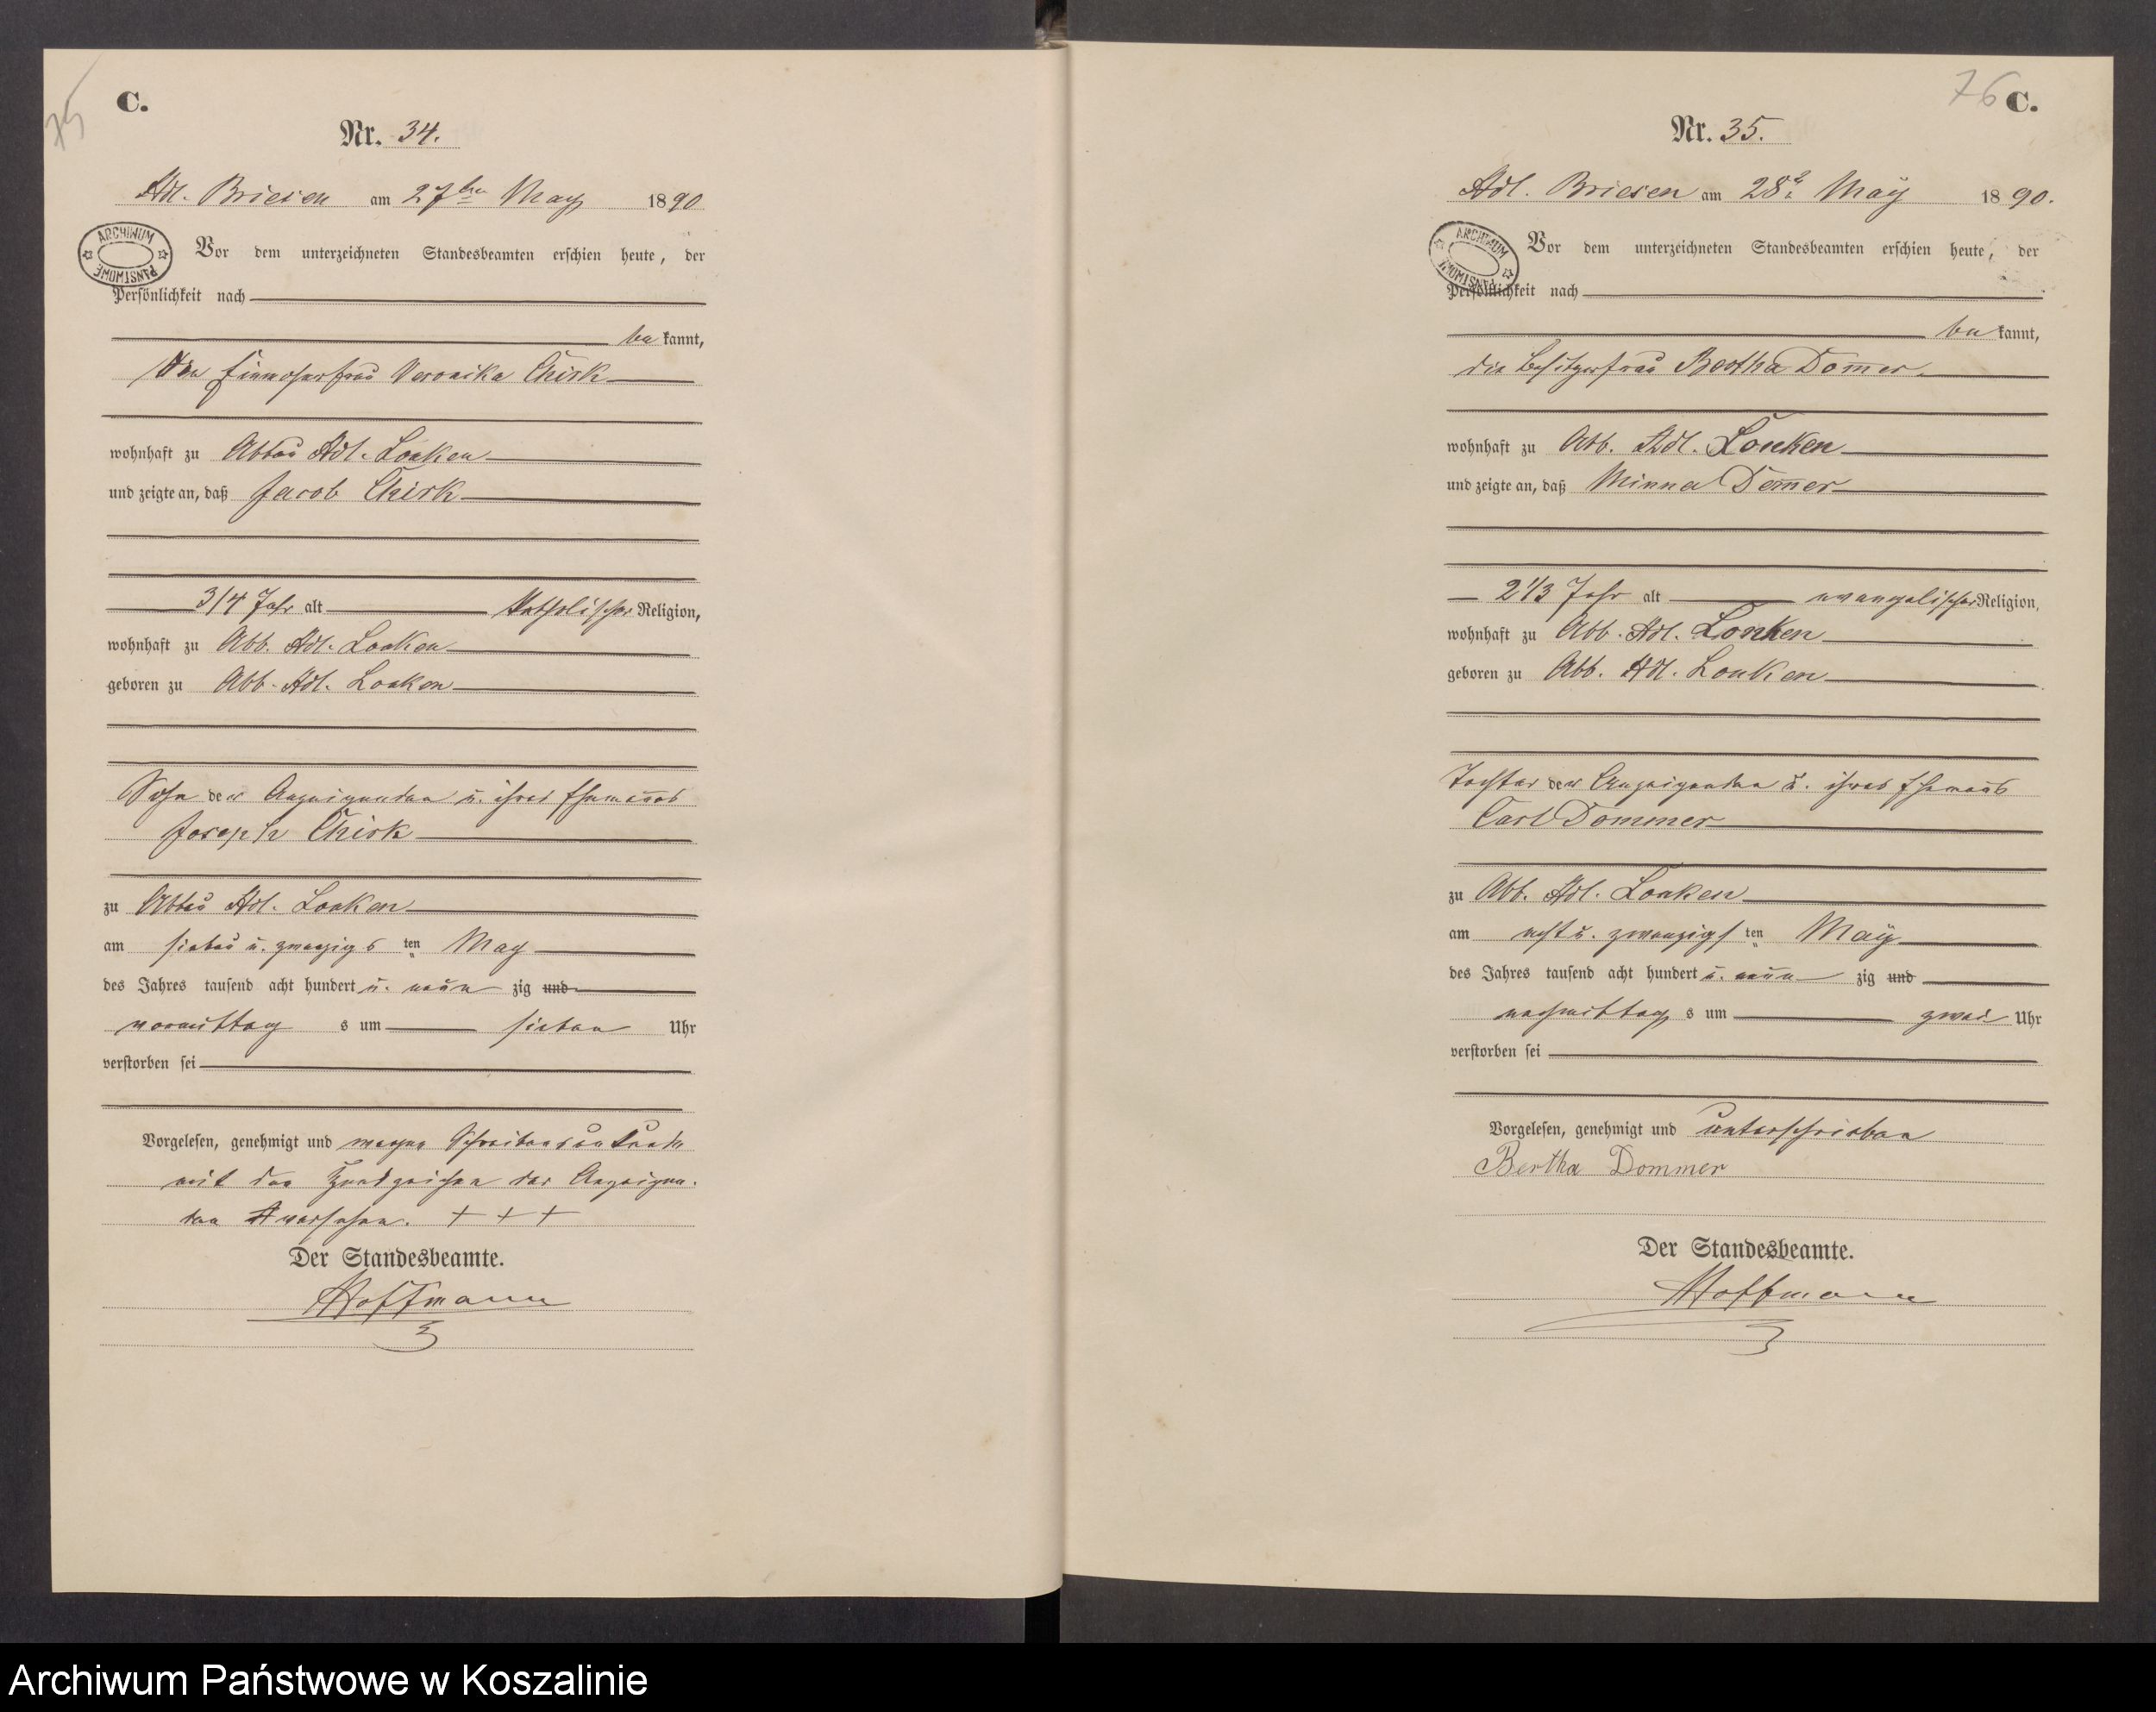 75
C.
Nr. 34.
Adl. Briesen am 27ten May 1890
ARCHIWUM PAŃSTWOWE
Vor dem unterzeichneten Standesbeamten erschien heute, der
Persönlichkeit nach
be kannt,
die Einwohnerfrau Veronika Chisk
wohnhaft zu Abbau Adl. Lonken
und zeigte an, daß Jacob Chisk
3/4 Jahr alt katholischer Religion,
wohnhaft zu Abb. Adl. Lonken
geboren zu Abb. Adl. Lonken
Sohn der Anzeigenden u. ihres Ehemanns
Joseph Chisk
zu Abbau Adl. Lonken
am sieben u. zwanzigs ten May
des Jahres tausend acht hundert u. neun zig und
vormittag s um sieben Uhr
verstorben sei
Vorgelesen, genehmigt und wegen Schreibensunkunde
mit den Handzeichen der Anzeigen-
den versehen. + + +
Der Standesbeamte.
Hoffmann
76
C.
Nr. 35.
Adl. Briesen am 28t May 1890.
ARCHIWUM PAŃSTWOWE
Vor dem unterzeichneten Standesbeamten erschien heute, der
Persönlichkeit nach
be kannt,
die Besitzerfrau Bertha Dom̅er
wohnhaft zu Abb. Adl. Lonken
und zeigte an, daß Minna Dom̅er
2 1/3 Jahr alt evangelischer Religion,
wohnhaft zu Abb. Adl. Lonken
geboren zu Abb. Adl. Lonken
Tochter der Anzeigenden u. ihres Ehemanns
Carl Dommer
zu Abb. Adl. Lonken
am acht u. zwanzigs ten May
des Jahres tausend acht hundert u. neun zig und
nachmittag s um zwei Uhr
verstorben sei
Vorgelesen, genehmigt und unterschrieben
Bertha Dommer
Der Standesbeamte.
Hoffmann
Archiwum Państwowe w Koszalinie